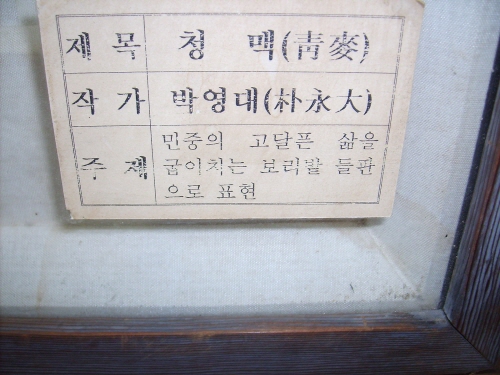 제 목 청 맥(靑麥)
작 가 박영대(朴永大)
민중의 고달픈 삶을
주 제 굽이치는 보리밭 들판
으로 표현